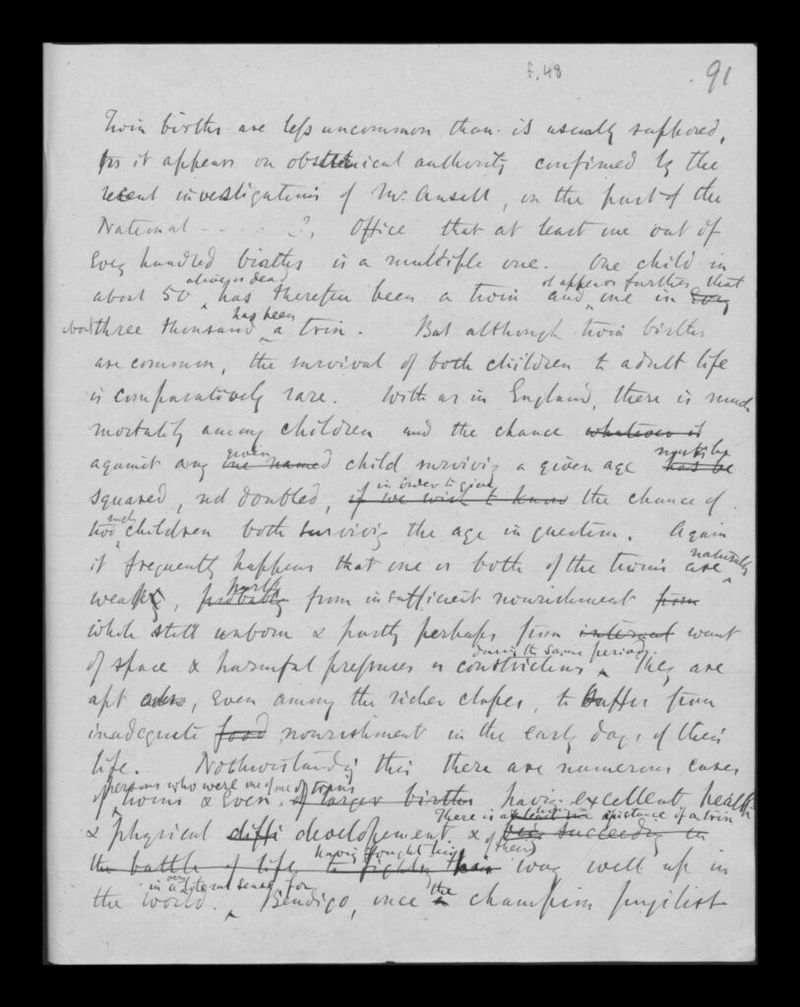 f.48 91
Twin births are less uncommon than is usually supposed,
for it appears on obstetrical authority confirmed by the
recent investigations of Mr. Ansell, on the part of the
National - - - - ?, Office that at least one out of
every hundred births is a multiple one. One child in
about 50 alive or dead has therefore been a twin and it appears further that one in every
about three thousand has been a trin. But although twin births
are common, the survival of both children to adult life
is comparatively rare. With us in England, there is much
mortality among children and the chance whatever it
against any one named given child surviving a given age has be must be
squared, not doubled, if we wish to know in order to give the chance of
two such children both surviving the age in question. Again
it frequently happens that one or both of the twins are naturally
weakly, probably partly from insufficient nourishment from
while still unborn & partly perhaps from internal want
of space & harmful pressures or constrictions during the same period. They are
apt also, even among the richer classes, to suffer from
inadequate food nourishment in the early days of their
life. Nothwistanding this there are numerous cases
of persons who were one of twins & even of larger births having excellent health
& physical diffi developement & of their succeeding in There is at least one instance of a twin
the battle of life to fighting having fought his their way well up in
the world. in a very literal sense, for Bendigo, once a the champion pugilist